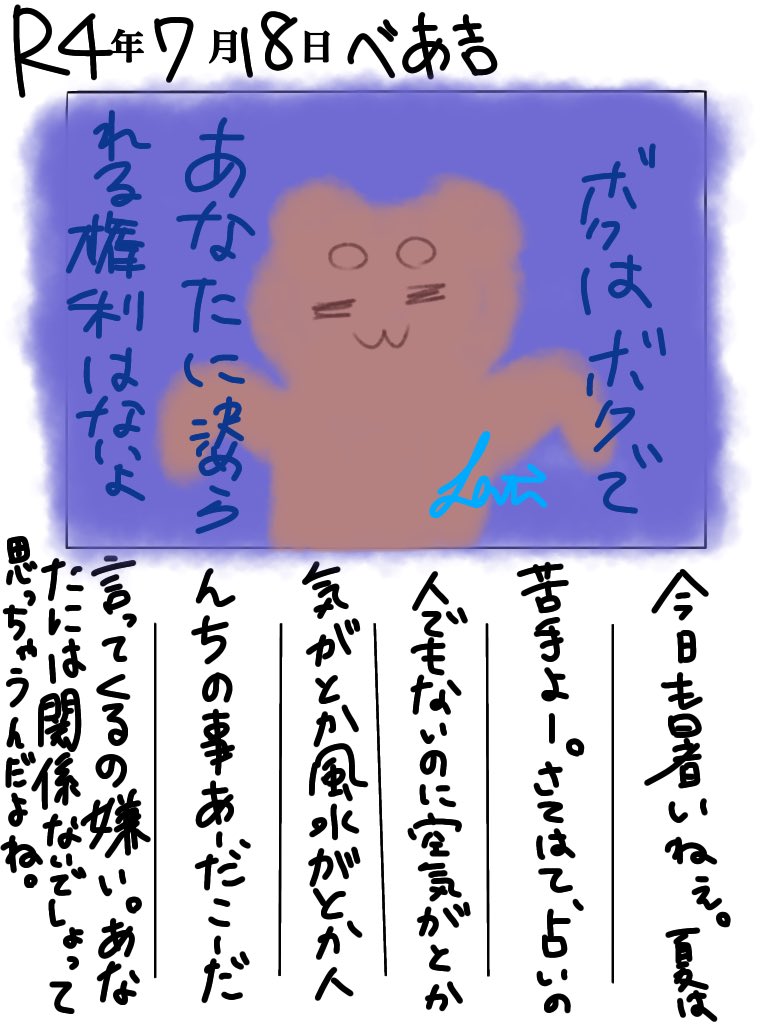 R4年7月18日べあ吉
ボクはボクで
あなたに決めら
れる権利はないよ
今日も暑いねぇ。夏は
苦手よー。さてはて、占いの
人でもないのに空気がとか
気がとか風水がとか人
んちの事あーだこーだ
言ってくるの嫌い。あな
たには関係ないでしょって
思っちゃうんだよね。